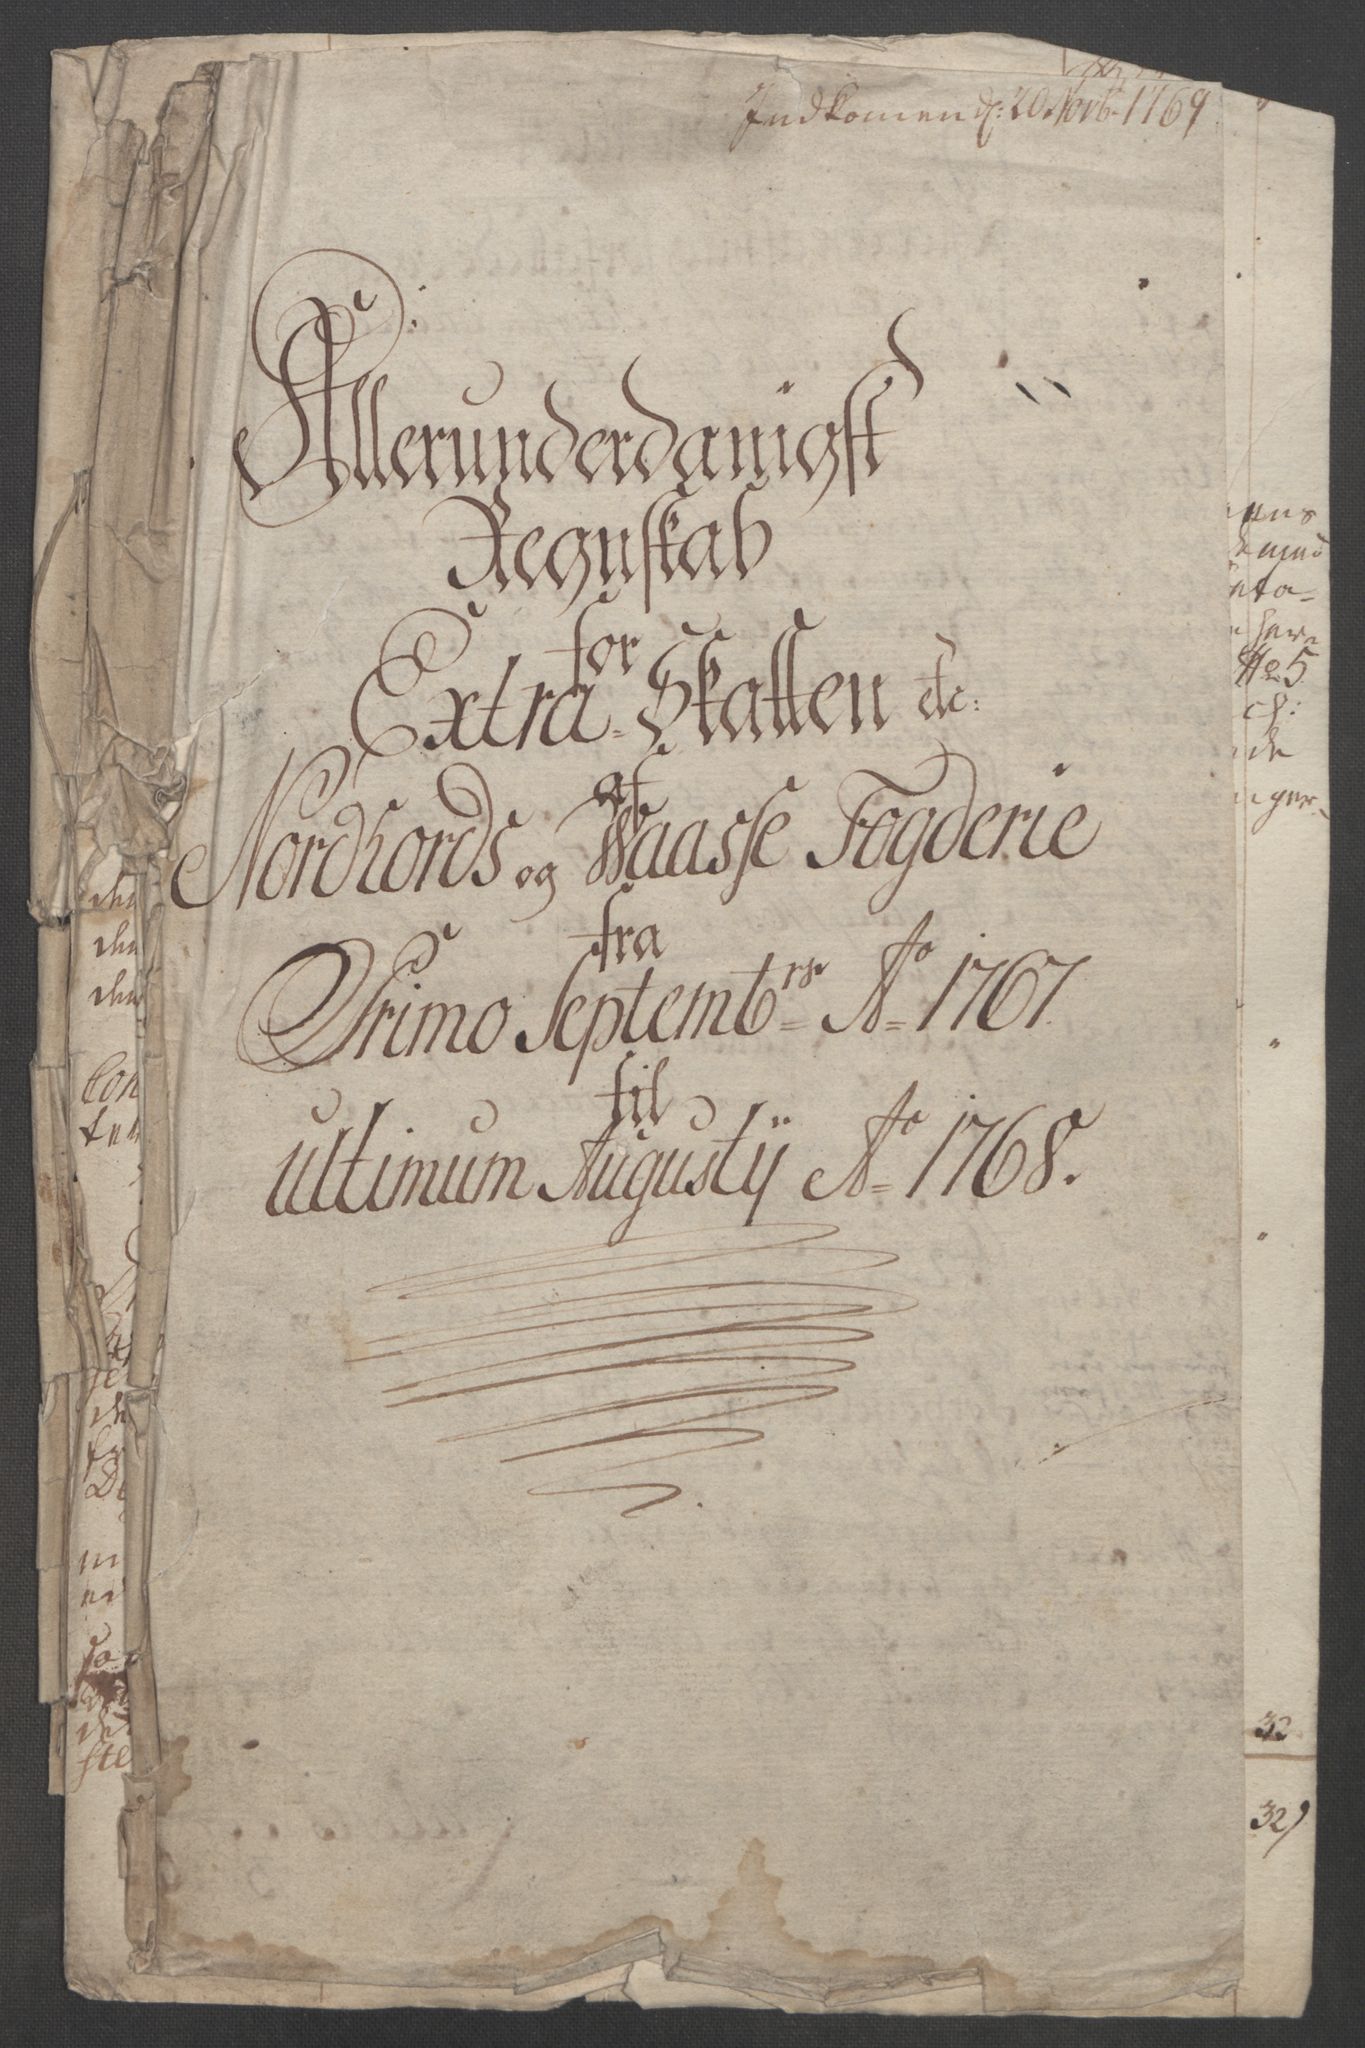 Indkomen d: 20 Novb. 1769
Allerunderdanigst
Regnskab
for
Extra-Skatten etc:
af
Nordhords og Waasse Fogderie
fra
Primo Septembr: Ao 1767.
til
ultimum Augustij Ao 1768.
No 5
32
32